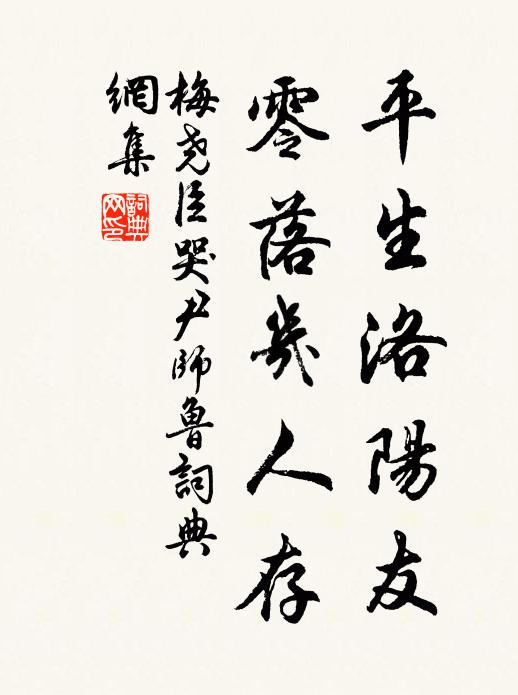 平生洛陽友
零落幾人存
梅堯臣哭尹師魯詞典
網集
詞典網印